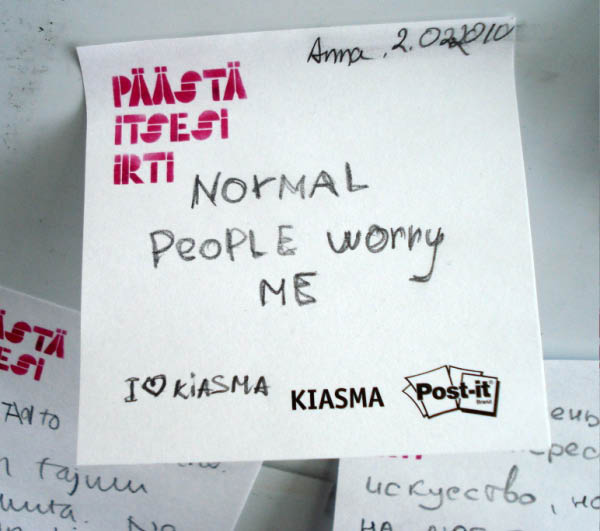 Anna, 2.02.2010
PÄÄSTÄ
ITSESI
IRTI
NORMAL
PEOPLE WORRY
ME
I ♡ KIASMA
KIASMA
Post-it
Brand
ÄSTÄ
ESI
tajuu
искусство, но
на